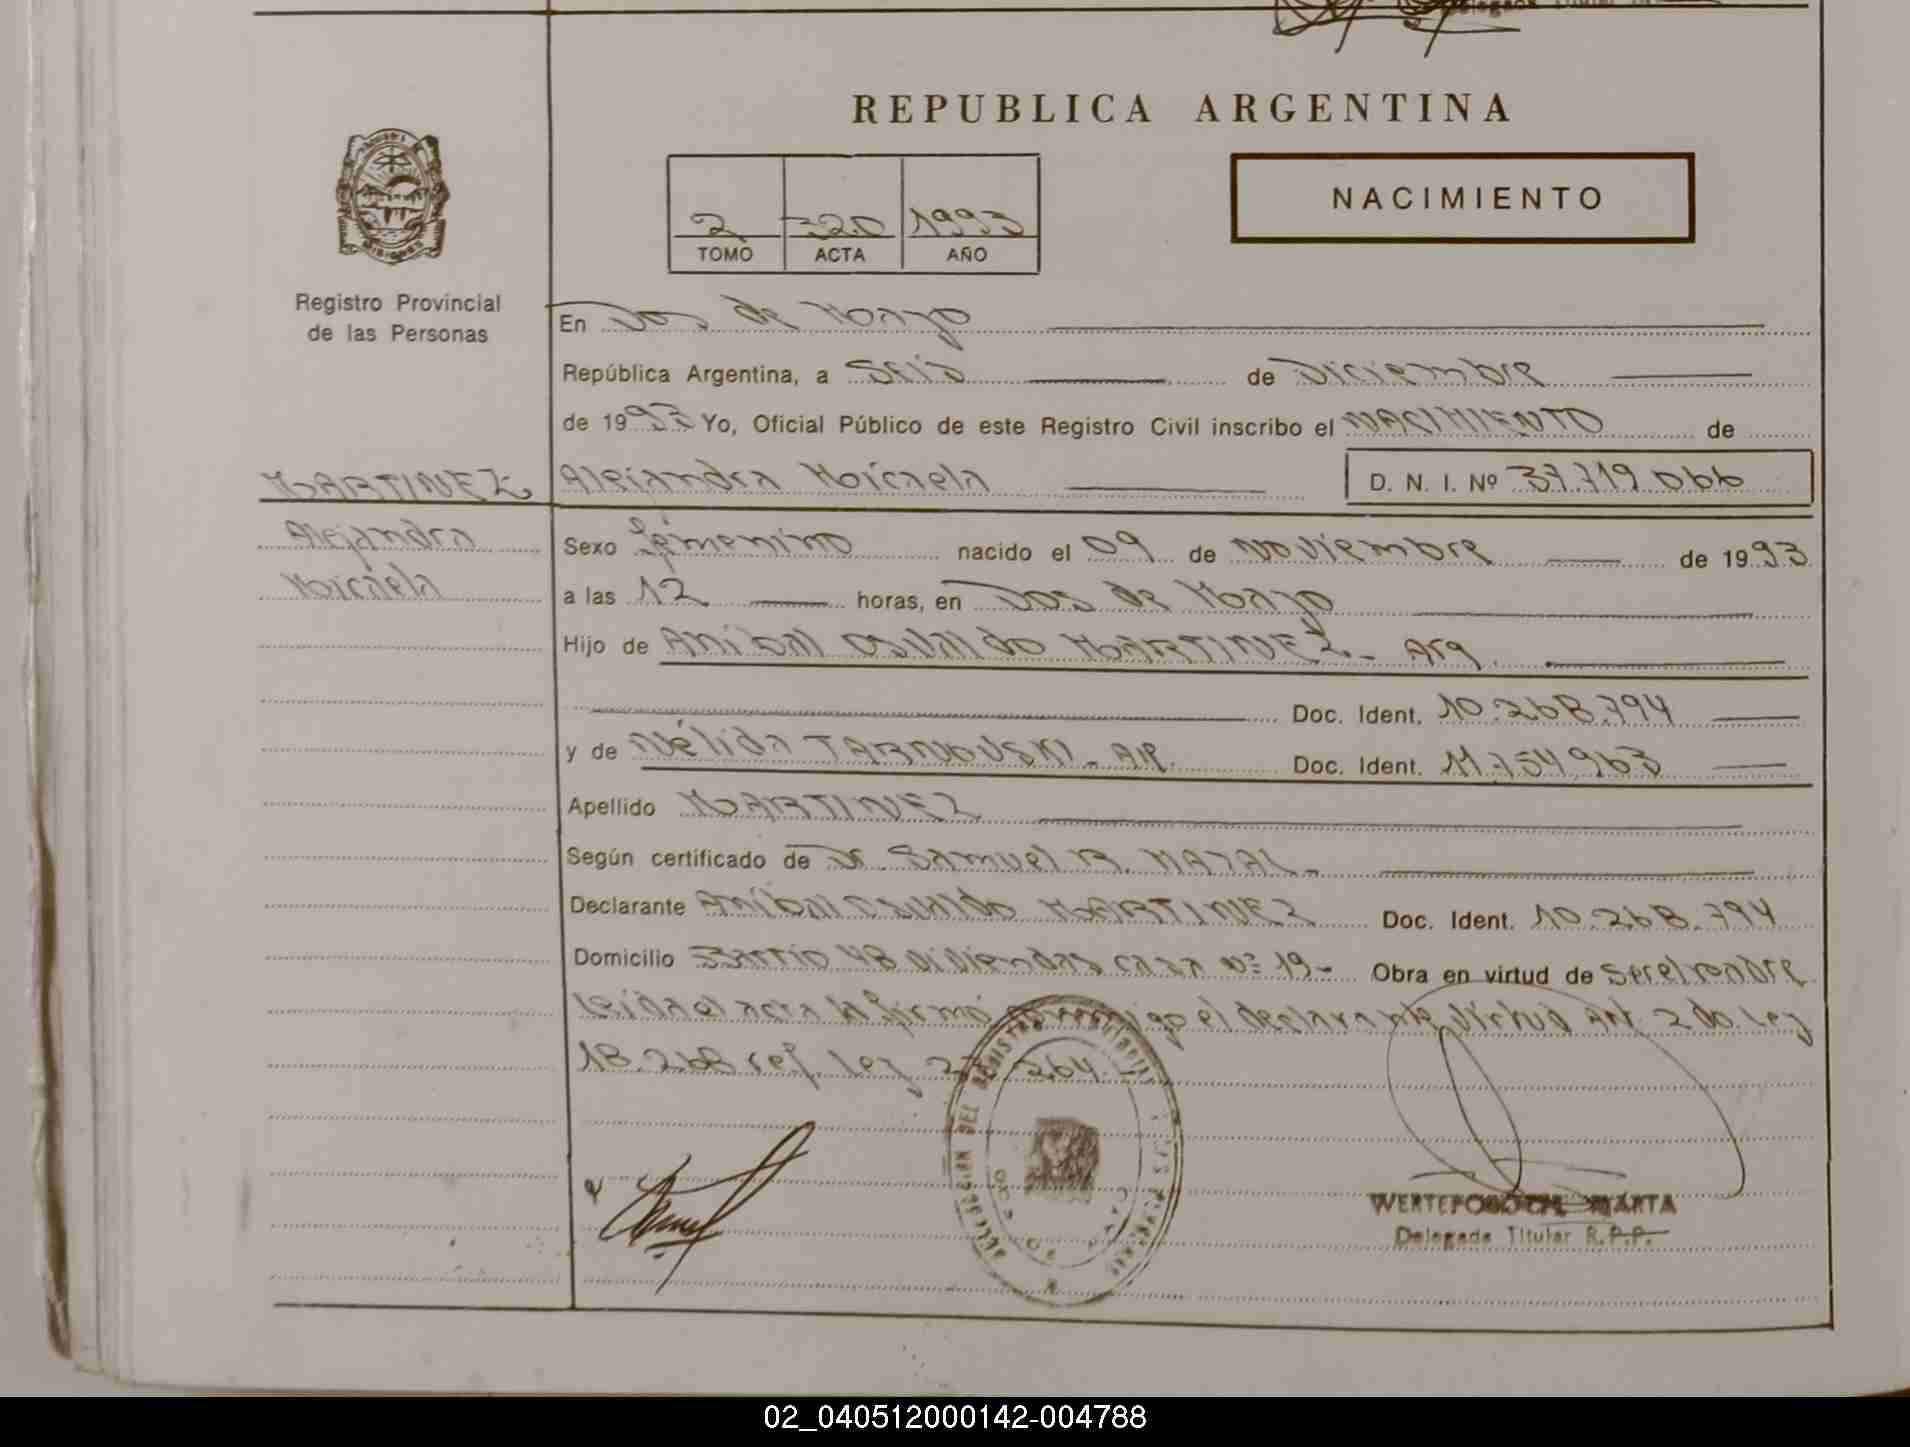 REPUBLICA ARGENTINA
2 320 1993
TOMO ACTA AÑO
NACIMIENTO
Registro Provincial
de las Personas
En Dos de Mayo
República Argentina, a Seis de Diciembre
de 1993 Yo, Oficial Público de este Registro Civil inscribo el NACIMIENTO de
MARTINEZ Alejandra Micaela D. N. I. Nº 37.719.066
Alejandra
Micaela
Sexo femenino nacido el 09 de Noviembre de 1993
a las 12 horas, en Dos de Mayo
Hijo de Anibal Osvaldo MARTINEZ - Arg.
Doc. Ident. 10.268.794
y de Nélida TARNOVSKI - AR. Doc. Ident. 11.754.963
Apellido MARTINEZ
Según certificado de Dr. Samuel
Declarante Anibal Osvaldo MARTINEZ Doc. Ident. 10.268.794
Domicilio Barrio 48 viviendas casa Nº 19 - Obra en virtud de ser el padre
leida el acta la firmó conmigo el declarante virtud Art. 2 do. Ley
18.268 ref. Ley 264
DELEGACION DEL REGISTRO
DOS DE MAYO
MARTA
Delegada Titular R.P.P.
02_040512000142-004788